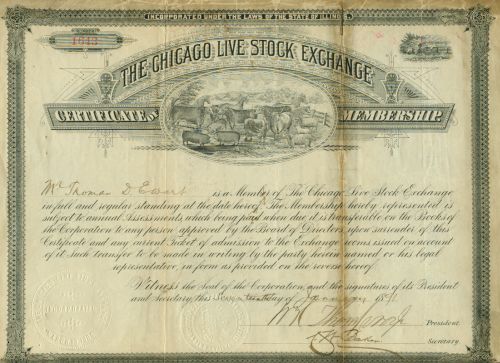 INCORPORATED UNDER THE LAWS OF THE STATE OF ILLINOIS.
1643
THE CHICAGO LIVE STOCK EXCHANGE
CERTIFICATE OF MEMBERSHIP.
Mr Thomas D Ewart is a Member of The Chicago Live Stock Exchange
in full and regular standing at the date hereof. The Membership hereby represented is
subject to annual Assessments which being paid when due it is transferable on the Books of
the Corporation to any person approved by the Board of Directors upon surrender of this
Certificate and any current Ticket of admission to the Exchange rooms issued on account
of it. Such transfer to be made in writing by the party herein named or his legal
representative, in form as provided on the reverse hereof.
Witness the Seal of the Corporation, and the signatures of its President
and Secretary, this day of January
President
Secretary